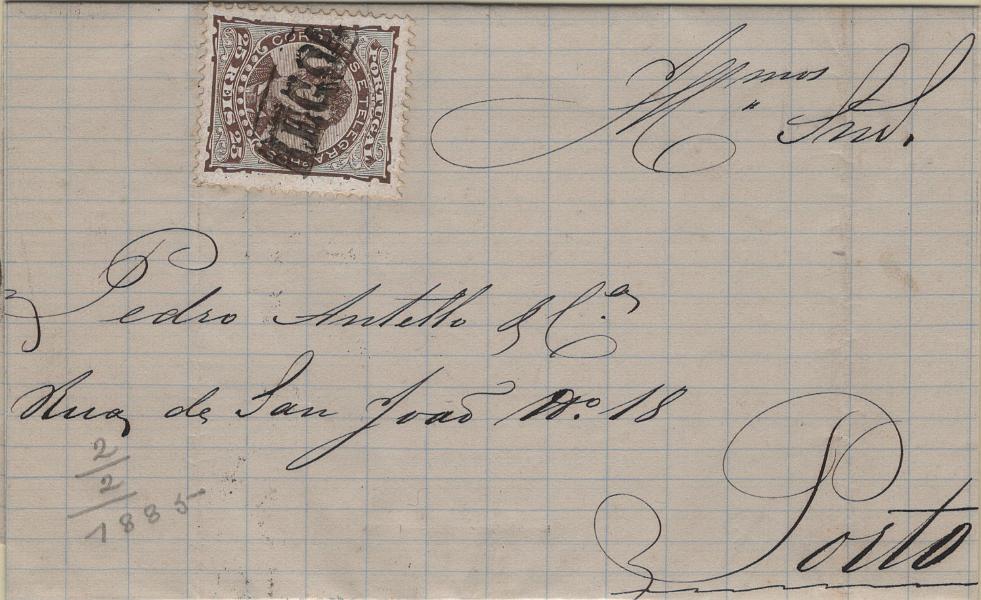 CORREIOS E TELEGRAPHOS
PORTUGAL
25 REIS 25
Snrs.
Pedro Antello & C.ª
Rua de San João Nº. 18
Porto
2/2/1885